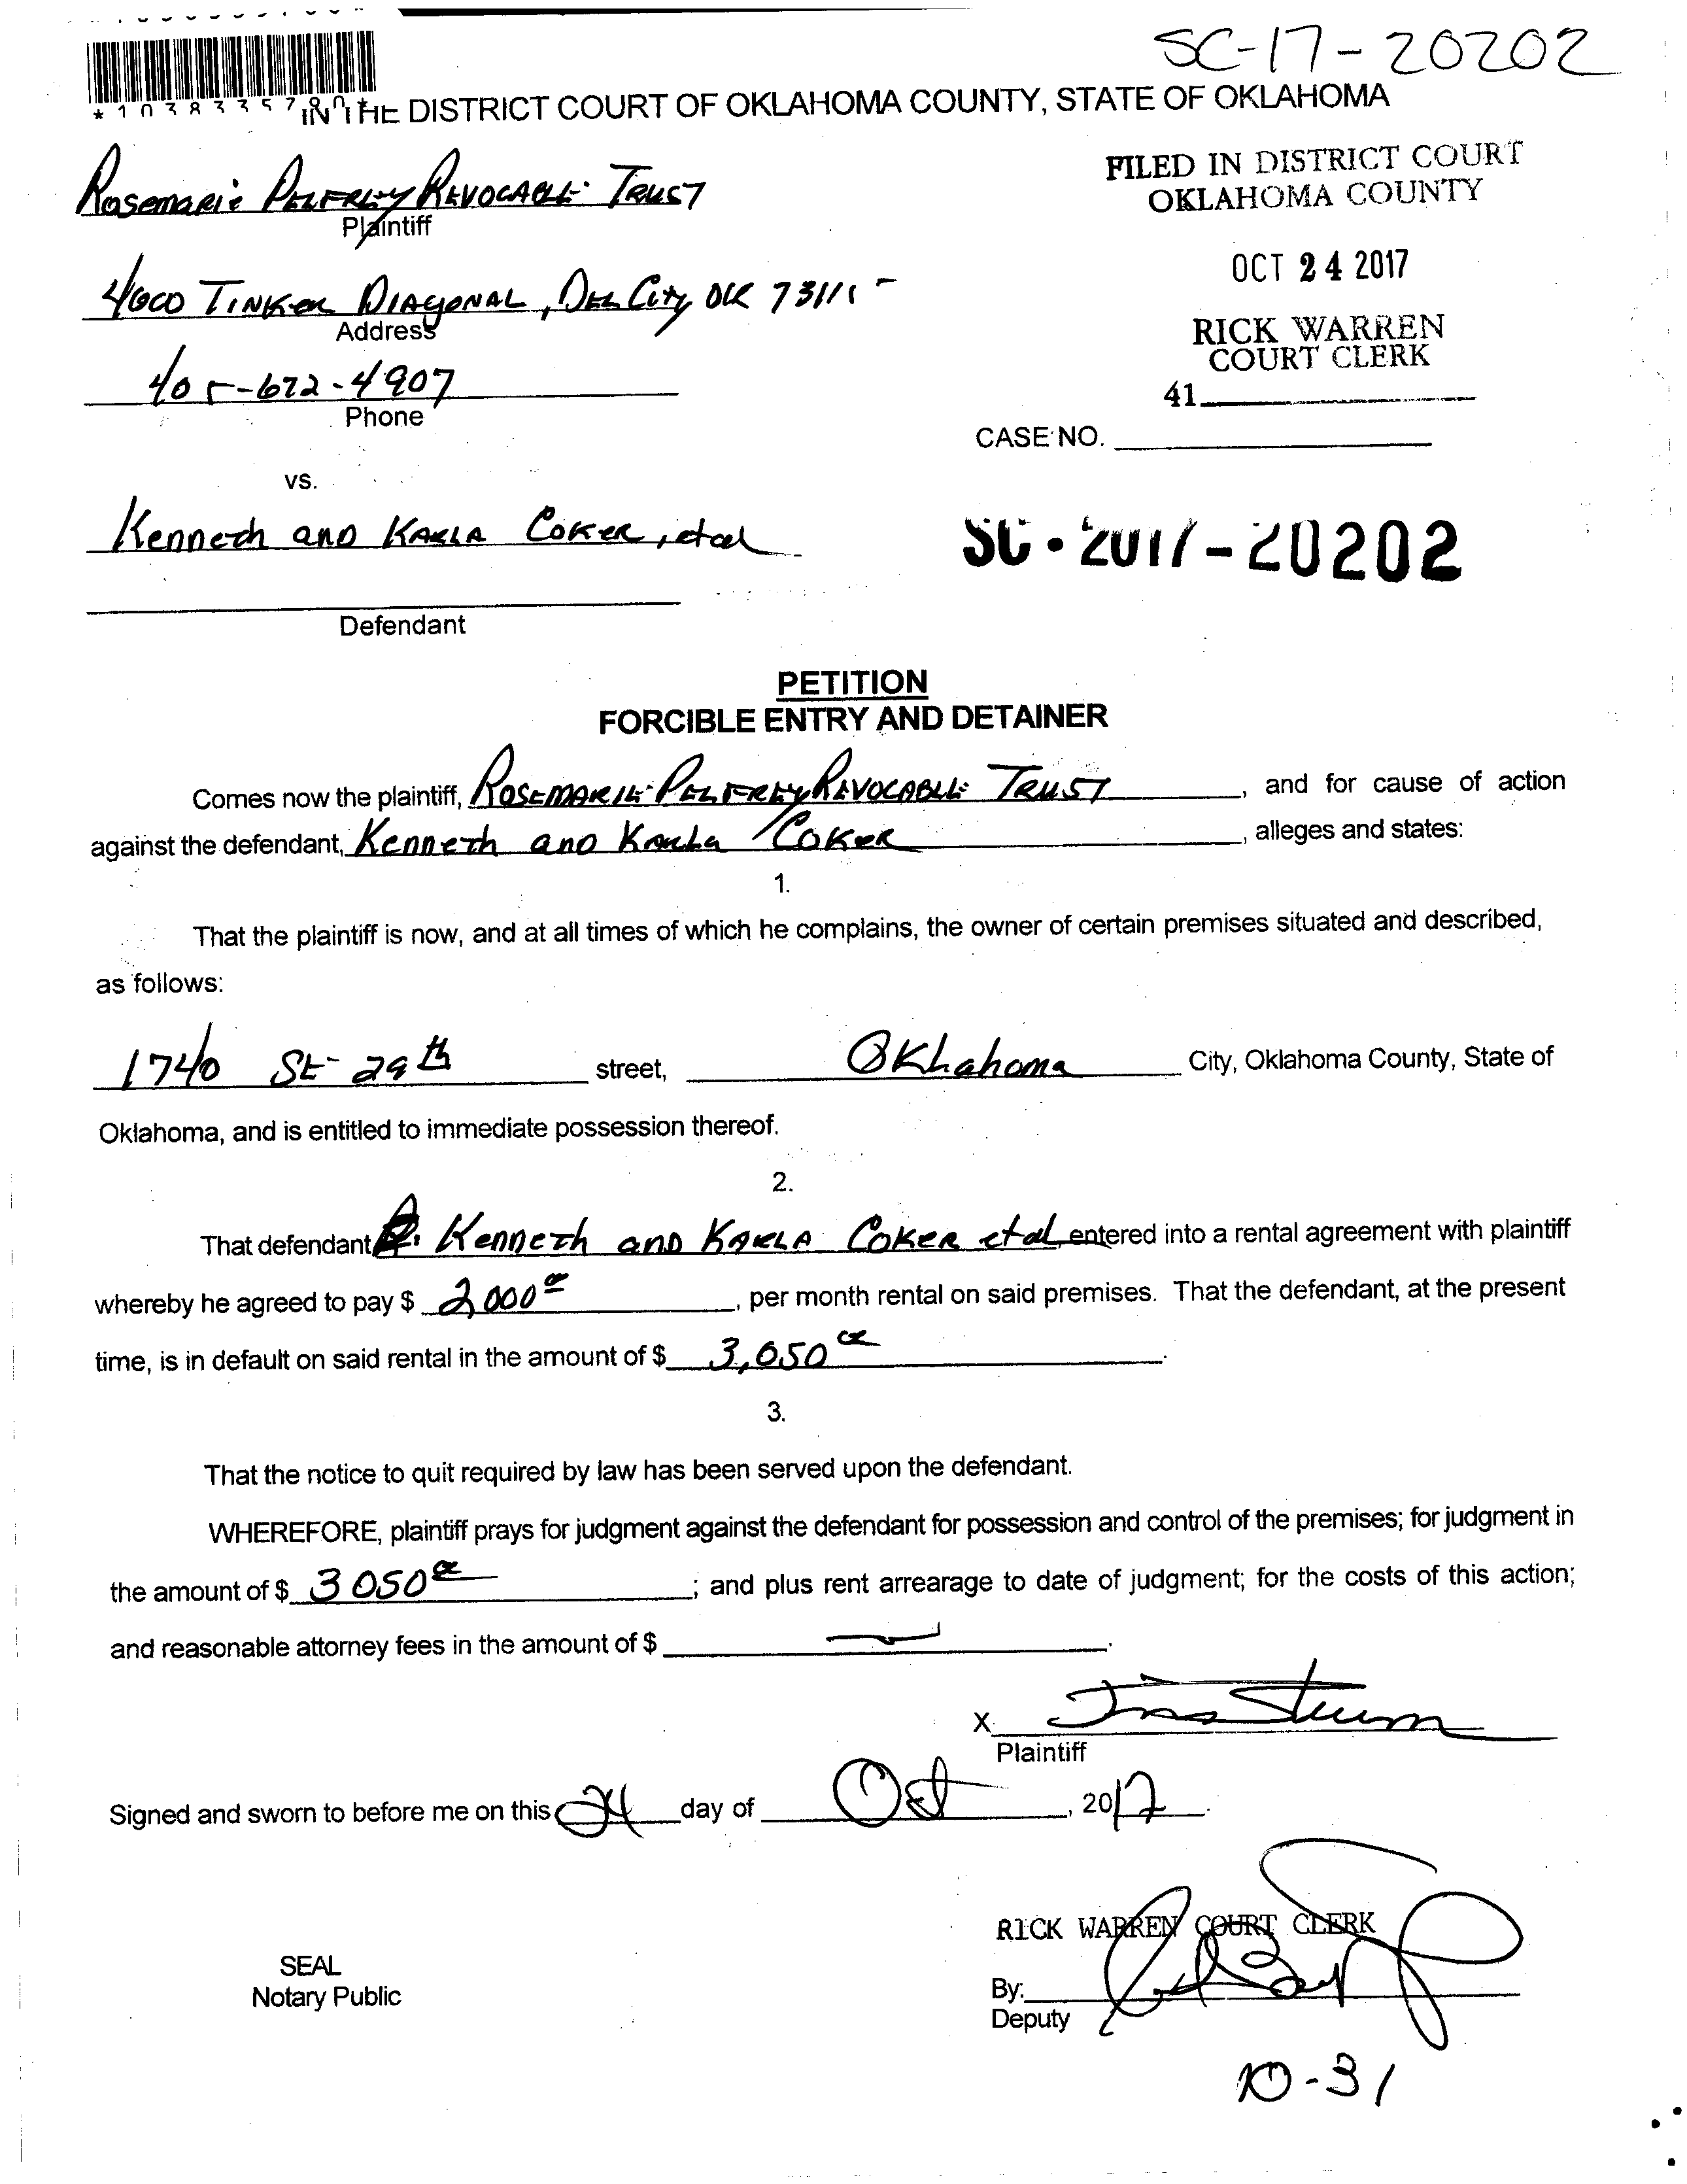 SC-17-20202
IN THE DISTRICT COURT OF OKLAHOMA COUNTY, STATE OF OKLAHOMA
FILED IN DISTRICT COURT
OKLAHOMA COUNTY
Rosemarie Pelfrey Revocable Trust
Plaintiff
OCT 24 2017
Tinker Diagonal, Del City, OK
Address
RICK WARREN
COURT CLERK
405-672-4907
41
Phone
CASE NO.
vs.
Kenneth and Karla Coker, etal
SC-2017-20202
Defendant
PETITION
FORCIBLE ENTRY AND DETAINER
Comes now the plaintiff, Rosemarie Pelfrey Revocable Trust, and for cause of action
against the defendant, Kenneth and Karla Coker, alleges and states:
1.
That the plaintiff is now, and at all times of which he complains, the owner of certain premises situated and described,
as follows:
1740 SE 29th street, Oklahoma City, Oklahoma County, State of
Oklahoma, and is entitled to immediate possession thereof.
2.
That defendant Kenneth and Karla Coker etal entered into a rental agreement with plaintiff
whereby he agreed to pay $ 2,000 00, per month rental on said premises. That the defendant, at the present
time, is in default on said rental in the amount of $ 3,050 00.
3.
That the notice to quit required by law has been served upon the defendant.
WHEREFORE, plaintiff prays for judgment against the defendant for possession and control of the premises; for judgment in
the amount of $ 3050 00; and plus rent arrearage to date of judgment; for the costs of this action;
and reasonable attorney fees in the amount of $ —.
X
Plaintiff
Signed and sworn to before me on this 24 day of Oct, 2017.
RICK WARREN COURT CLERK
SEAL
Notary Public
By:
Deputy
10-31